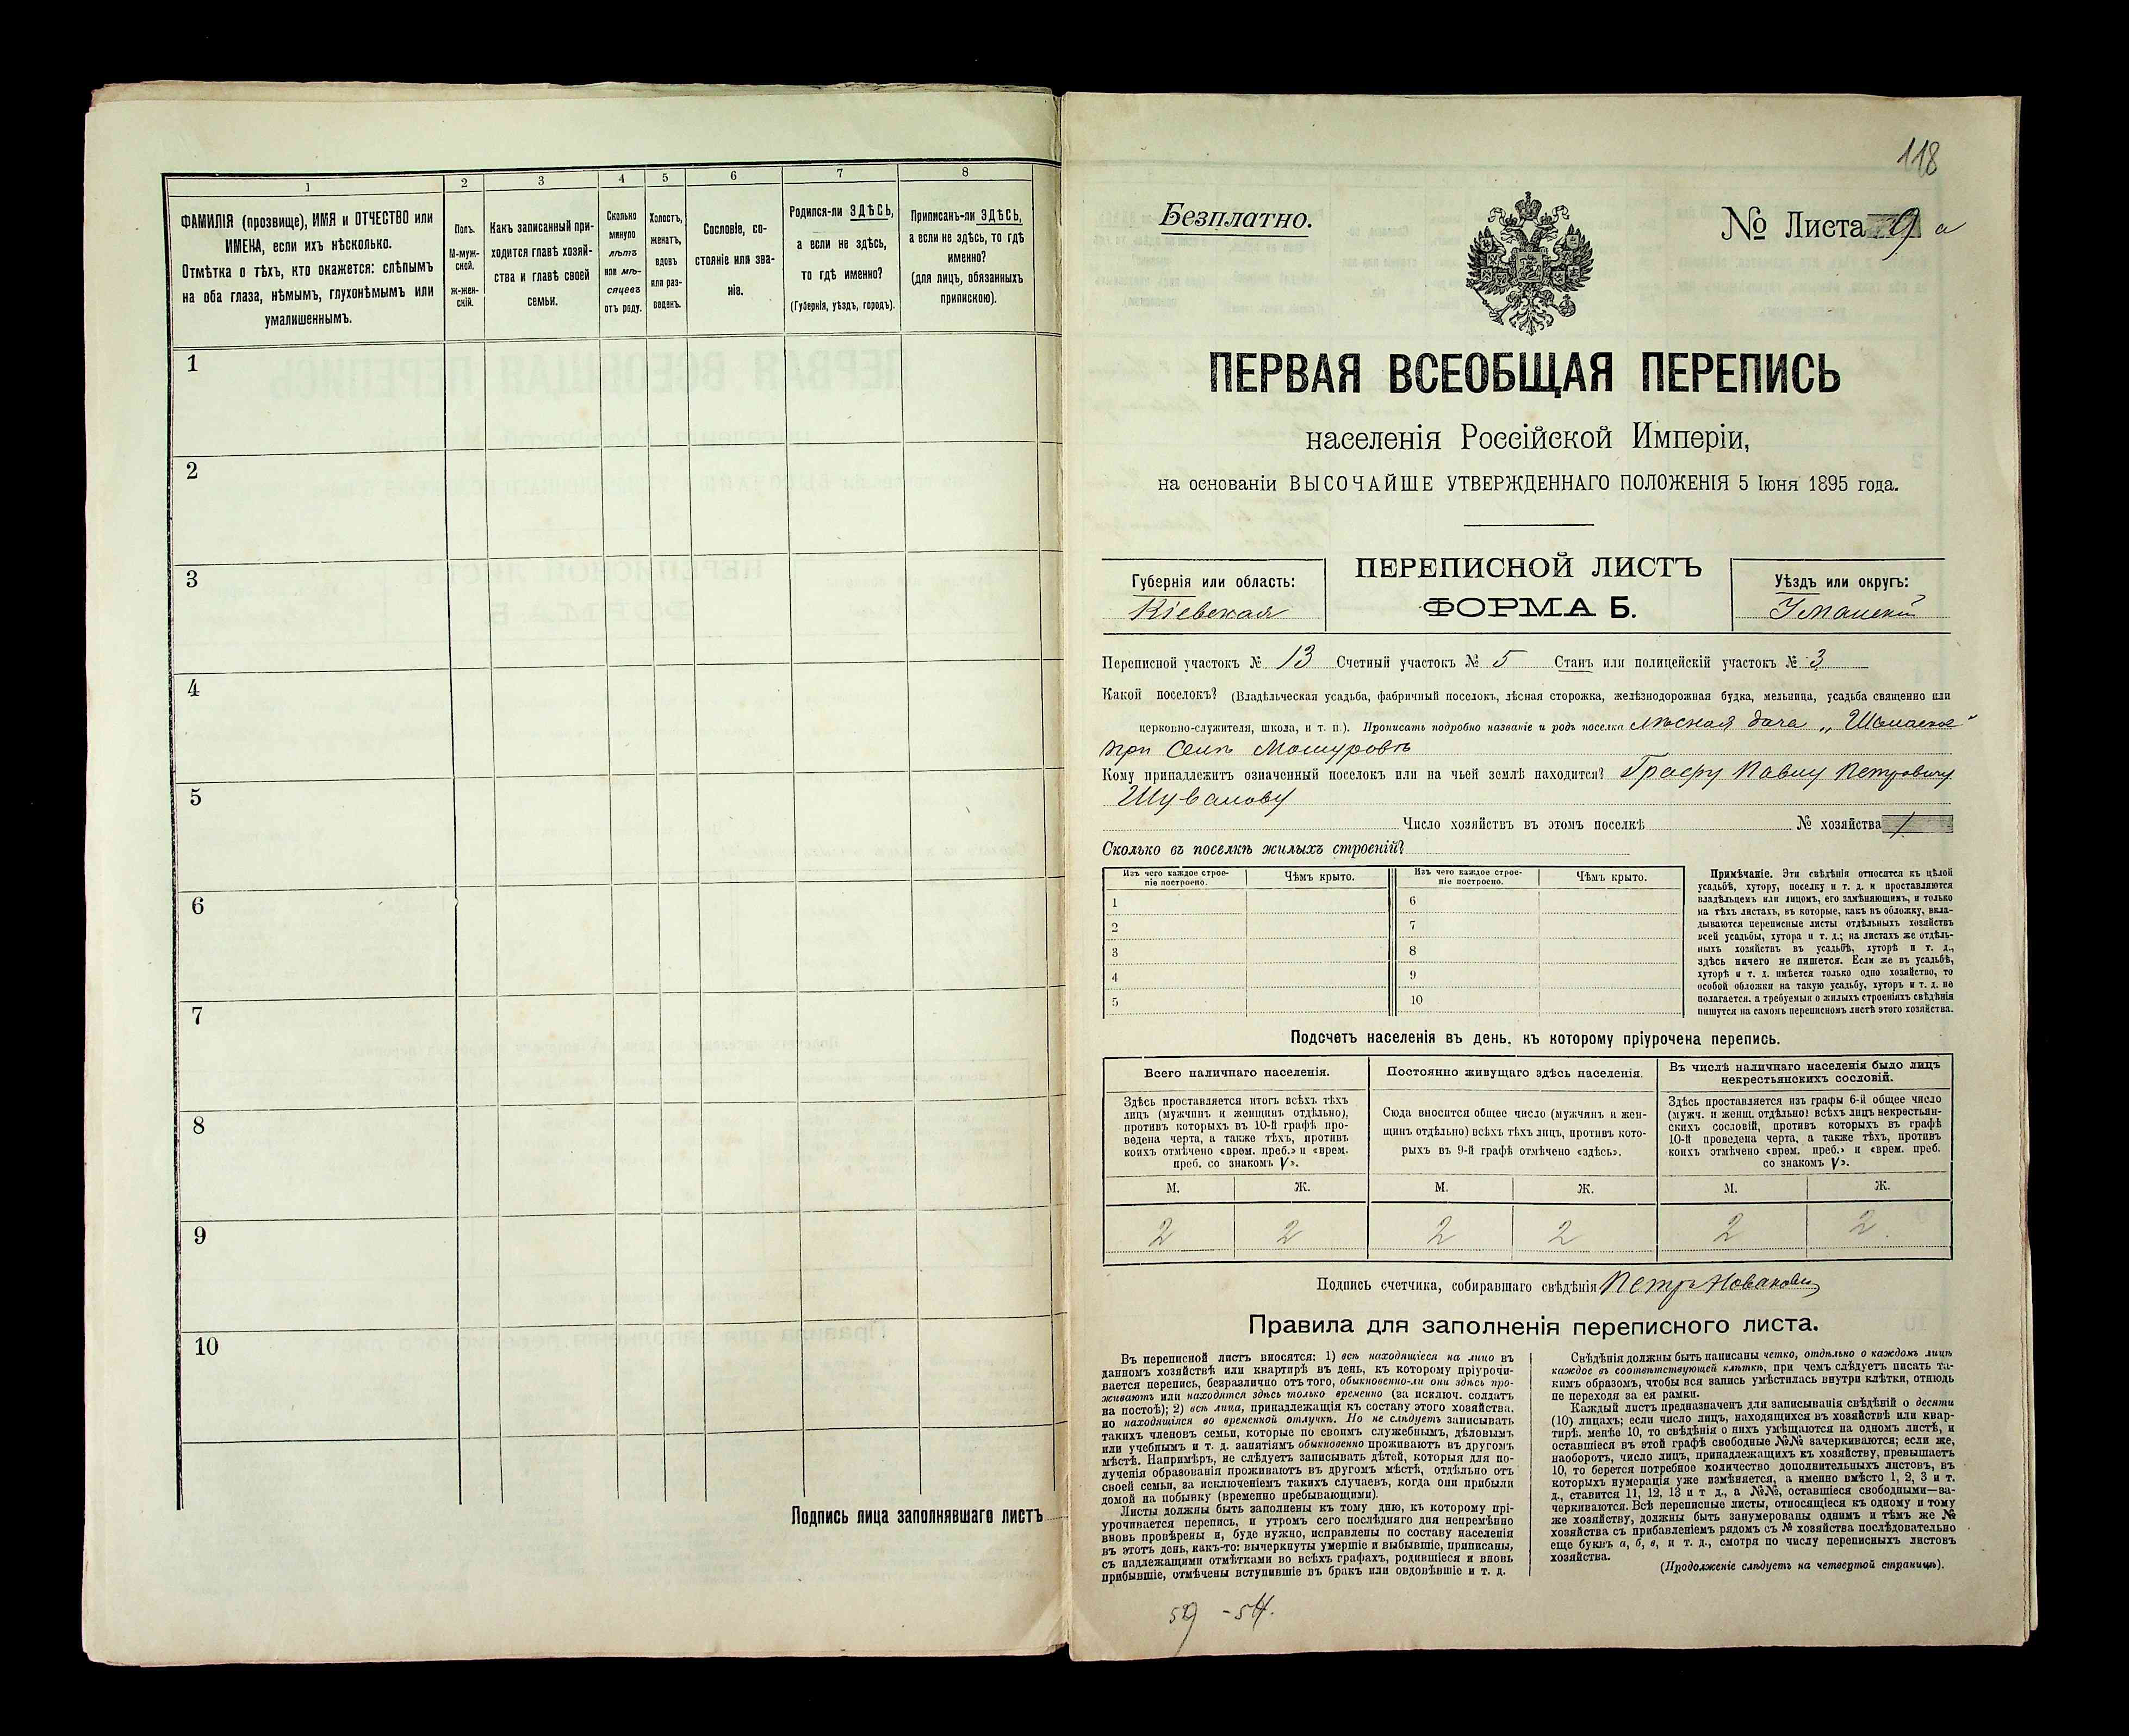 1
2
3
4
5
6
7
8
ФАМИЛІЯ (прозвище), ИМЯ и ОТЧЕСТВО или
ИМЕНА, если ихъ нѣсколько.
Отмѣтка о тѣхъ, кто окажется: слѣпымъ
на оба глаза, нѣмымъ, глухонѣмымъ или
умалишеннымъ.
Полъ.
М-муж-
ской.
ж-жен-
скій.
Какъ записанный при-
ходится главѣ хозяй-
ства и главѣ своей
семьи.
Сколько
минуло
лѣтъ
или мѣ-
сяцевъ
отъ роду.
Холостъ,
женатъ,
вдовъ
или раз-
веденъ.
Сословіе, со-
стояніе или зва-
ніе.
Родился-ли ЗДѢСЬ,
а если не здѣсь,
то гдѣ именно?
(Губернія, уѣздъ, городъ).
Приписанъ-ли ЗДѢСЬ,
а если не здѣсь, то гдѣ
именно?
(для лицъ, обязанныхъ
припискою).
1
2
3
4
5
6
7
8
9
10
Подпись лица заполнявшаго листъ
118
Безплатно.
№ Листа 9 а
ПЕРВАЯ ВСЕОБЩАЯ ПЕРЕПИСЬ
населенія Россійской Имперіи,
на основаніи ВЫСОЧАЙШЕ УТВЕРЖДЕННАГО ПОЛОЖЕНІЯ 5 Іюня 1895 года.
Губернія или область:
Кіевская
ПЕРЕПИСНОЙ ЛИСТЪ
ФОРМА Б.
Уѣздъ или округъ:
Уманскій
Переписной участокъ № 13 Счетный участокъ № 5 Станъ или полицейскій участокъ № 3
Какой поселокъ? (Владѣльческая усадьба, фабричный поселокъ, лѣсная сторожка, желѣзнодорожная будка, мельница, усадьба священно или
церковно-служителя, школа, и т. п.). Прописать подробно названіе и родъ поселка лѣсная дача
при Селѣ Мошуровѣ
Кому принадлежитъ означенный поселокъ или на чьей землѣ находится? Графу Павлу Петровичу
Шувалову
Число хозяйствъ въ этомъ поселкѣ № хозяйства 1
Сколько въ поселкѣ жилыхъ строеній?
Изъ чего каждое строе-
ніе построено.
Чѣмъ крыто.
Изъ чего каждое строе-
ніе построено.
Чѣмъ крыто.
1
2
3
4
5
6
7
8
9
10
Примѣчаніе. Эти свѣдѣнія относятся къ цѣлой
усадьбѣ, хутору, поселку и т. д. и проставляются
владѣльцемъ или лицомъ, его замѣняющимъ, и только
на тѣхъ листахъ, въ которые, какъ въ обложку, вкла-
дываются переписные листы отдѣльныхъ хозяйствъ
всей усадьбы, хутора и т. д.; на листахъ же отдѣль-
ныхъ хозяйствъ въ усадьбѣ, хуторѣ и т. д.,
здѣсь ничего не пишется. Если же въ усадьбѣ,
хуторѣ и т. д. имѣется только одно хозяйство, то
особой обложки на такую усадьбу, хуторъ и т. д. не
полагается, а требуемыя о жилыхъ строеніяхъ свѣдѣнія
пишутся на самомъ переписномъ листѣ этого хозяйства.
Подсчетъ населенія въ день, къ которому пріурочена перепись.
Всего наличнаго населенія.
Постоянно живущаго здѣсь населенія.
Въ числѣ наличнаго населенія было лицъ
некрестьянскихъ сословій.
Здѣсь проставляется итогъ всѣхъ тѣхъ
лицъ (мужчинъ и женщинъ отдѣльно),
противъ которыхъ въ 10-й графѣ про-
ведена черта, а также тѣхъ, противъ
коихъ отмѣчено «врем. преб.» и «врем.
преб. со знакомъ V».
Сюда вносится общее число (мужчинъ и жен-
щинъ отдѣльно) всѣхъ тѣхъ лицъ, противъ кото-
рыхъ въ 9-й графѣ отмѣчено «здѣсь».
Здѣсь проставляется изъ графы 6-й общее число
(мужч. и женщ. отдѣльно) всѣхъ лицъ некрестьян-
скихъ сословій, противъ которыхъ въ графѣ
10-й проведена черта, а также тѣхъ, противъ
коихъ отмѣчено «врем. преб.» и «врем. преб.
со знакомъ V».
М. Ж. М. Ж. М. Ж.
2 2 2 2 2 2
Подпись счетчика, собиравшаго свѣдѣнія Петръ
Правила для заполненія переписного листа.
Въ переписной листъ вносятся: 1) всѣ находящіеся на лицо въ
данномъ хозяйствѣ или квартирѣ въ день, къ которому пріурочи-
вается перепись, безразлично отъ того, обыкновенно-ли они здѣсь про-
живаютъ или находятся здѣсь только временно (за исключ. солдатъ
на постоѣ); 2) всѣ лица, принадлежащія къ составу этого хозяйства,
но находящіяся во временной отлучкѣ. Но не слѣдуетъ записывать
такихъ членовъ семьи, которые по своимъ служебнымъ, дѣловымъ
или учебнымъ и т. д. занятіямъ обыкновенно проживаютъ въ другомъ
мѣстѣ. Напримѣръ, не слѣдуетъ записывать дѣтей, которыя для по-
лученія образованія проживаютъ въ другомъ мѣстѣ, отдѣльно отъ
своей семьи, за исключеніемъ такихъ случаевъ, когда они прибыли
домой на побывку (временно пребывающими).
Листы должны быть заполнены къ тому дню, къ которому прі-
урочивается перепись, и утромъ сего послѣдняго дня непремѣнно
вновь провѣрены и, буде нужно, исправлены по составу населенія
въ этотъ день, какъ-то: вычеркнуты умершіе и выбывшіе, приписаны,
съ надлежащими отмѣтками во всѣхъ графахъ, родившіеся и вновь
прибывшіе, отмѣчены вступившіе въ бракъ или овдовѣвшіе и т. д.
Свѣдѣнія должны быть написаны четко, отдѣльно о каждомъ лицѣ
каждое въ соотвѣтствующей клѣткѣ, при чемъ слѣдуетъ писать та-
кимъ образомъ, чтобы вся запись умѣстилась внутри клѣтки, отнюдь
не переходя за ея рамки.
Каждый листъ предназначенъ для записыванія свѣдѣній о десяти
(10) лицахъ; если число лицъ, находящихся въ хозяйствѣ или квар-
тирѣ, менѣе 10, то свѣдѣнія о нихъ умѣщаются на одномъ листѣ, и
оставшіеся въ этой графѣ свободные №№ зачеркиваются; если же,
наоборотъ, число лицъ, принадлежащихъ къ хозяйству, превышаетъ
10, то берется потребное количество дополнительныхъ листовъ, въ
которыхъ нумерація уже измѣняется, а именно вмѣсто 1, 2, 3 и т.
д., ставится 11, 12, 13 и т д., а №№, оставшіеся свободными—за-
черкиваются. Всѣ переписные листы, относящіеся къ одному и тому
же хозяйству, должны быть занумерованы однимъ и тѣмъ же №
хозяйства съ прибавленіемъ рядомъ съ № хозяйства послѣдовательно
еще буквъ а, б, в, и т. д., смотря по числу переписныхъ листовъ
хозяйства.
(Продолженіе слѣдуетъ на четвертой страницѣ).
59 - 54.